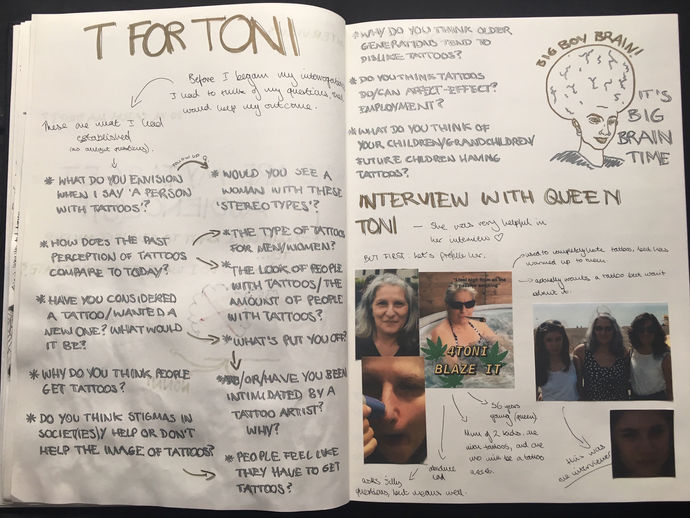 T FOR TONI
Before I began my interrogations,
I had to think of my questions, that
would help my outcome.
These are what I had
established
(no unique questions).
* WHAT DO YOU ENVISION
WHEN I SAY 'A PERSON
WITH TATTOOS'?
* HOW DOES THE PAST
PERCEPTION OF TATTOOS
COMPARE TO TODAY?
* HAVE YOU CONSIDERED
A TATTOO/WANTED A
NEW ONE? WHAT WOULD
IT BE?
* WHY DO YOU THINK PEOPLE
GET TATTOOS?
* DO YOU THINK STIGMAS IN
SOCIET(IES)Y HELP OR DON'T
HELP THE IMAGE OF TATTOOS?
FOLLOW UP Q
* WOULD YOU SEE A
WOMAN WITH THESE
'STEREOTYPES'?
* THE TYPE OF TATTOOS
FOR MEN/WOMEN?
* THE LOOK OF PEOPLE
WITH TATTOOS/THE
AMOUNT OF PEOPLE
WITH TATTOOS?
* WHAT'S PUT YOU OFF?
/OR/HAVE YOU BEEN
INTIMIDATED BY A
TATTOO ARTIST?
WHY?
* PEOPLE FEEL LIKE
THEY HAVE TO GET
TATTOOS?
* WHY DO YOU THINK OLDER
GENERATIONS TEND TO
DISLIKE TATTOOS?
* DO YOU THINK TATTOOS
DO/CAN AFFECT-EFFECT?
EMPLOYMENT?
* WHAT DO YOU THINK OF
YOUR CHILDREN/GRANDCHILDREN/
FUTURE CHILDREN HAVING
TATTOOS?
BIG BOY BRAIN!
IT'S
BIG
BRAIN
TIME
INTERVIEW WITH QUEEN
TONI
— She was very helpful in
her interview ♡
BUT FIRST: Let's profile her.
used to completely hate tattoos, but has
warmed up to them
actually wants a tattoo but won't
about it.
4TONI
BLAZE IT
56 years
young (queen)
Mum of 2 kids, one
tattoos, and one
will be a tattoo
absolute
asks silly
questions, but means well.
this was
interviewer